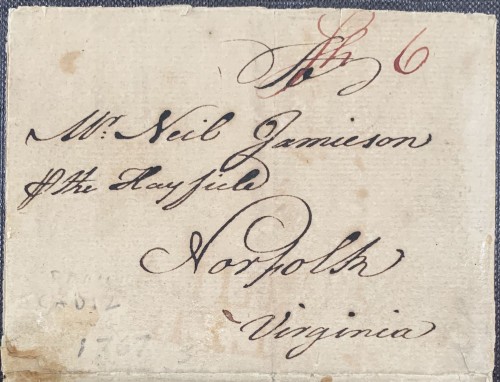 To 6
Mr. Neil Jamieson
⅌ the Hayfield
Norfolk
Virginia
CADIZ